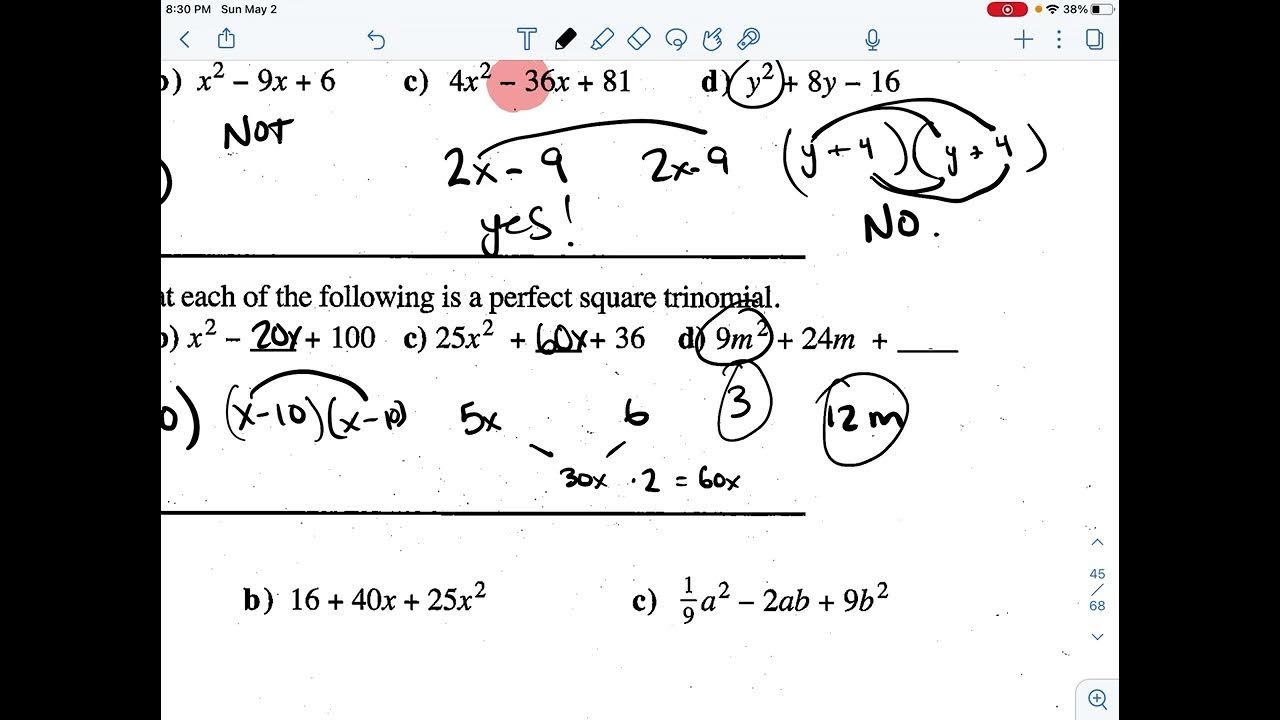 8:30 PM Sun May 2 38%
b) x² − 9x + 6 c) 4x² − 36x + 81 d) y² + 8y − 16
NOT 2x − 9 2x - 9 (y + 4)(y + 4)
) yes! NO.
at each of the following is a perfect square trinomial.
b) x² − 20x + 100 c) 25x² + 60x + 36 d) 9m² + 24m + ____
0) (x−10)(x−10) 5x 6 3 12m
30x · 2 = 60x
b) 16 + 40x + 25x² c) 1/9 a² − 2ab + 9b²
45
/
68